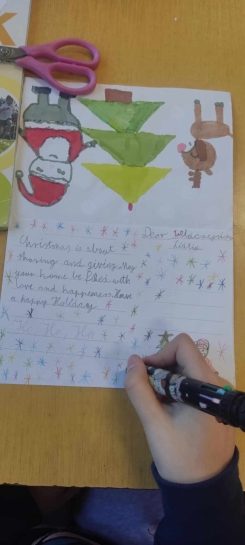 Dear
Christmas is about
sharing and giving. May
your home be filled with
love and happenes. Have
a happy Holiday
Ho Ho Ho